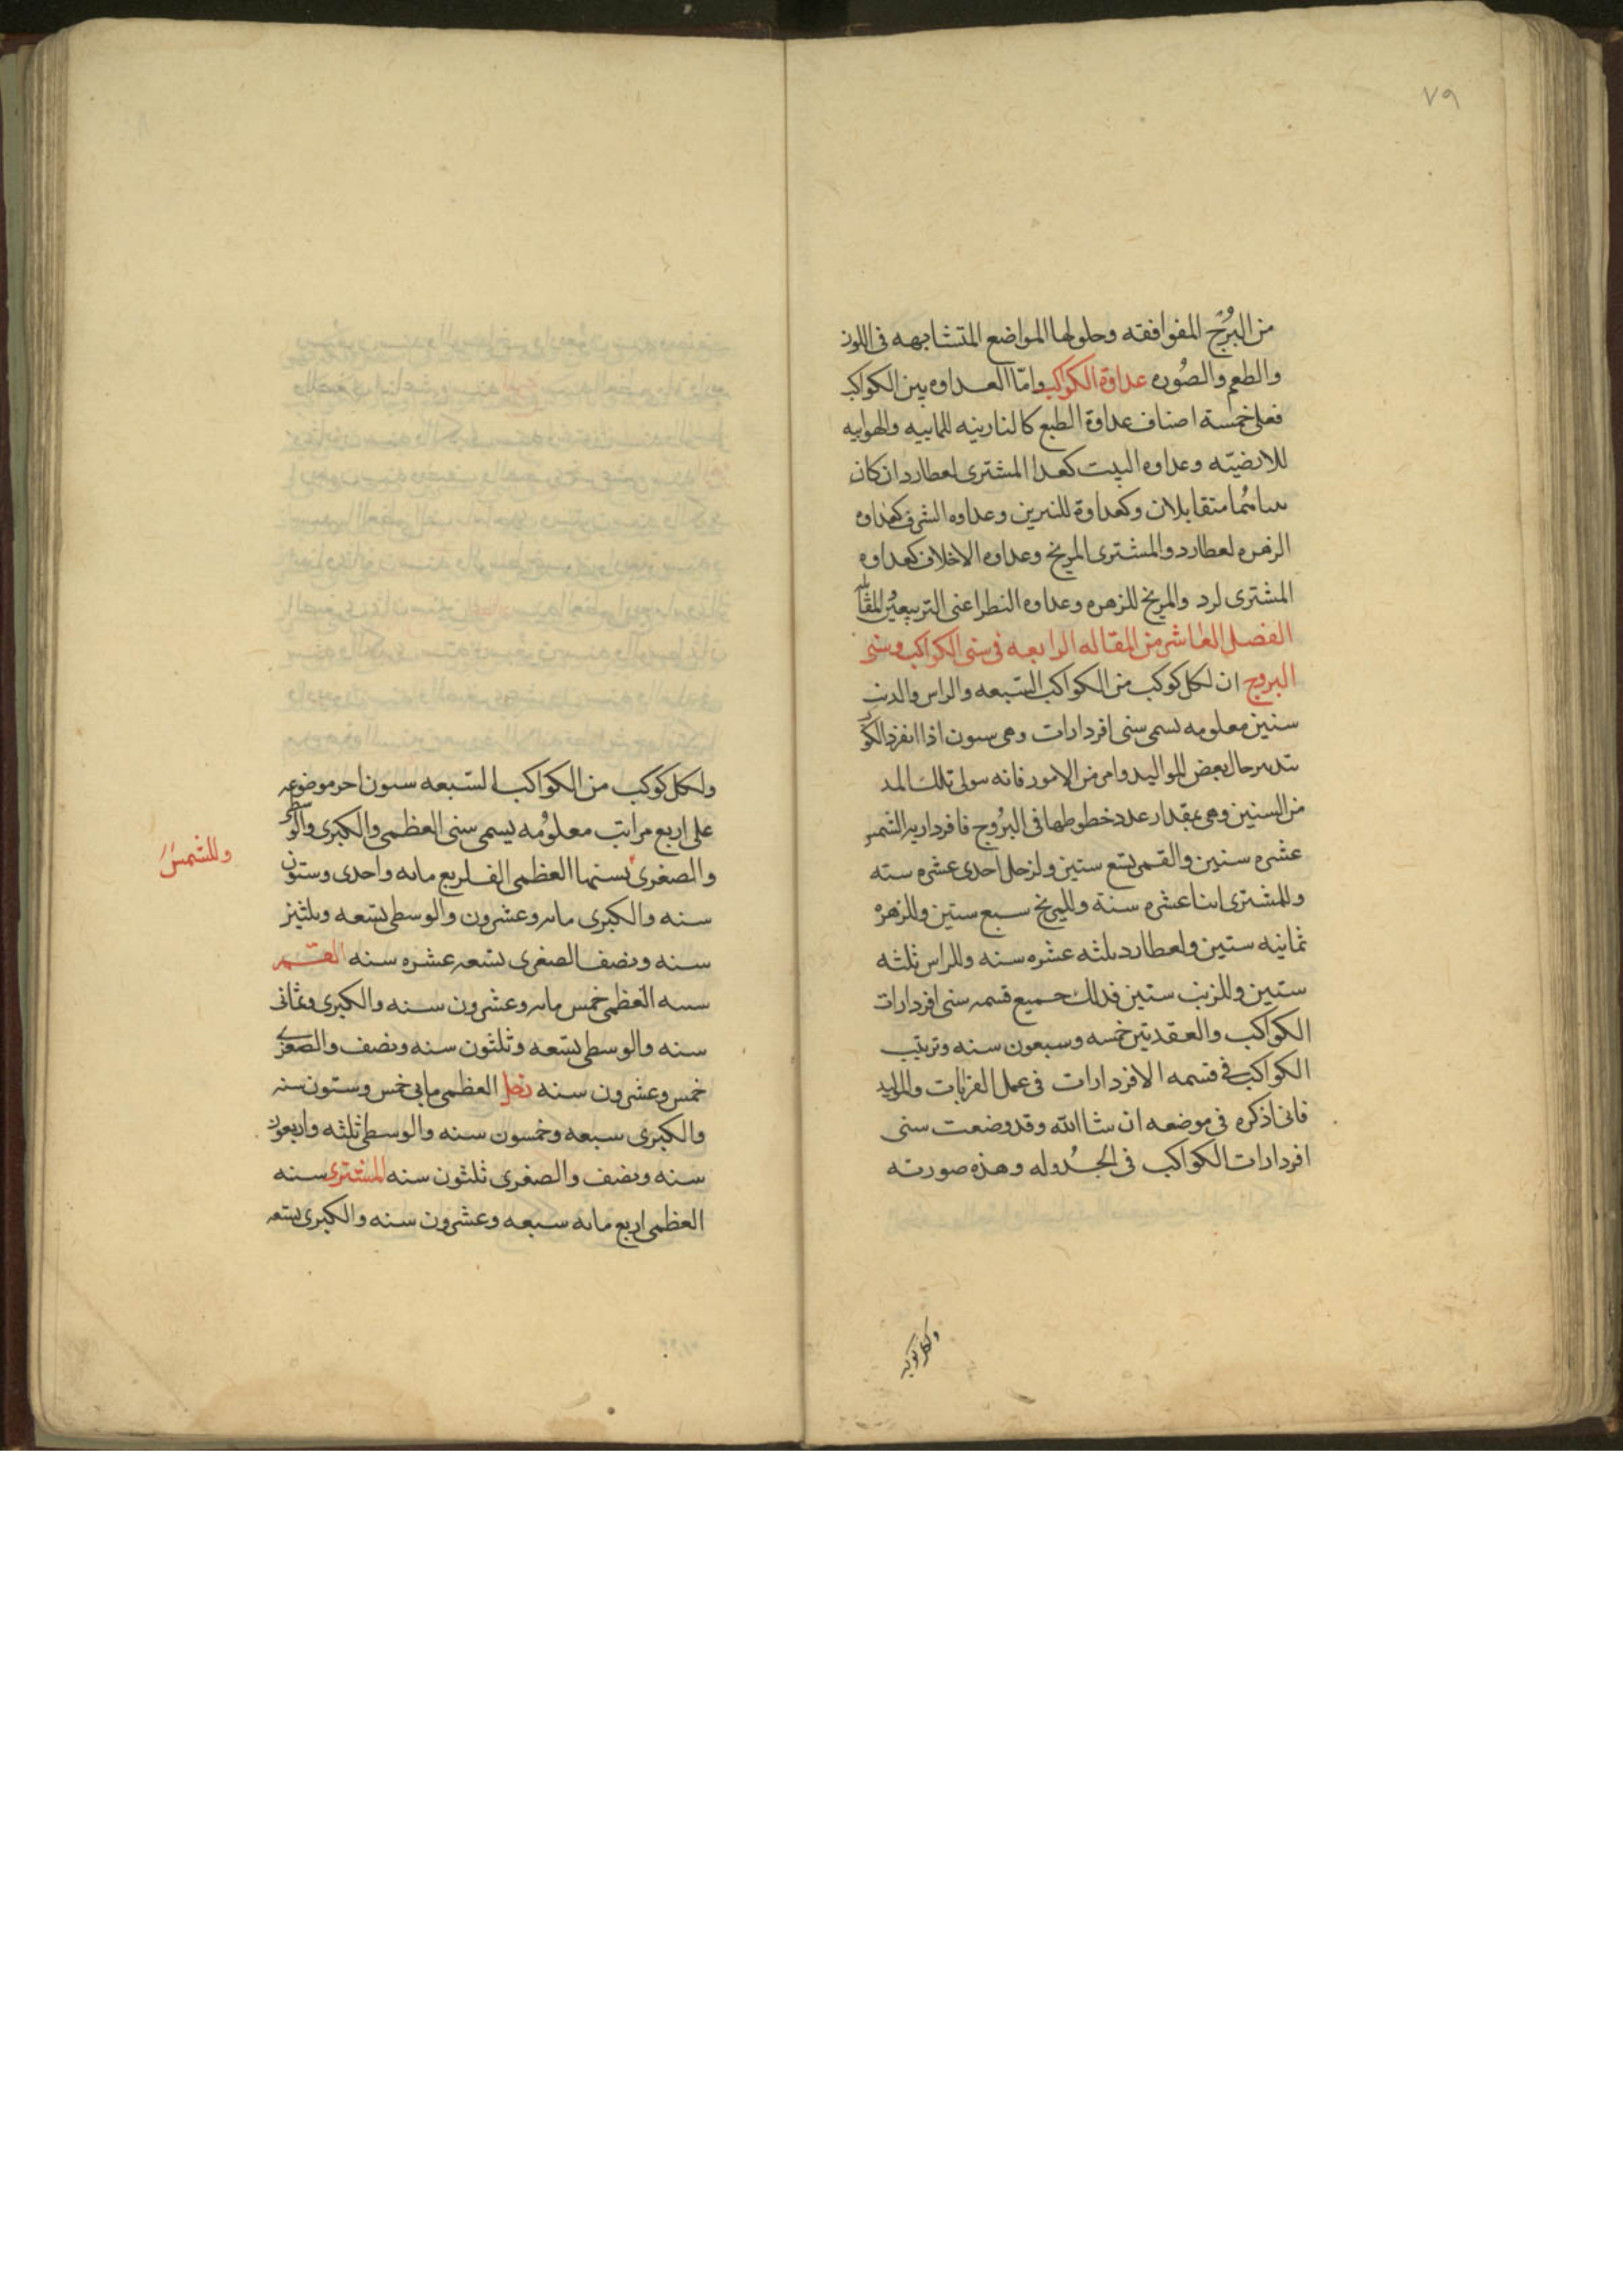 ٧٩
من البرُوُج المفوافقته وحلولها المواضع المتشابهه فى اللون
والطعم والصُوره عداوة الكواكب وامّا العداوه بين الكواكب
فعلى خمسة اصناف عداوة الطبع كالنارينه للمابيه والهوابيه
للارضيّه وعداوه البيت كعدا المشترى لعطارد ان كان
متقابلان وكعداوة للنيرين وعداوه الشرف كعداوه
الزهره لعطارد والمشترى المريخ وعداوه الاخلاف كعداوه
المشترى لرد والمريخ للزهره وعداوه النظر اعنى التربيعين
الفصل العاشر من المقاله الرابعه فى سنى الكواكب وسنى
البروج ان لكل كوكب من الكواكب السّبعه والراس والدنب
سنين معلومه تسمى سنى افردارات وهى سنون اذا انفرد
تدبير حال بعض المواليد وامر من الامور فانه سولى تلك المد
من السنين وهى بمقدار عدد خطوطها فى البرُوج فافرداريه الشمس
عشره سنين والقمر تسع سنين ولزحل احدى عشره سنه
وللمشترى اثنا عشره سنة وللمريخ سبع سنين وللزهره
ثمانيه سنين ولعطارد ثلثه عشره سنه وللراس ثلثه
سنين وللزنب سنين فذلك جميع قسمه سنى افردارات
الكواكب والعقدتين خمسه وسبعون سنه وترتيب
الكواكب فى قسمه الافردارات فى عمل القرانات والمواليد
فانى اذكره فى موضعه ان شا الله وقد وضعت سنى
افردارات الكواكب فى الجُدوله وهذه صورته
ولكل كوكب من الكواكب السّبعه سنون اخر موضوعه
على اربع مراتب معلومُه يسمى سنى العظمى والكبرى والوسطى
والصغرى فسنها العظمى الف اربع مايه واحدى وستون
وللشمس
سنه والكبرى مايه وعشرون والوسطى تسعه وثلثين
سنه ونصف الصغرى تسعه عشره سنه القمر
سنه العظمى خمس مايه وعشرون سنه والكبرى وثمانى
سنه والوسطى تسعه وثلثون سنه ونصف والصغرى
خمس وعشرون سنه زحل العظمى مابى خمس وستون سنه
والكبرى سبعه وخمسون سنه والوسطى ثلثه واربعون
سنه ونصف والصغرى ثلثون سنه المشترى سنه
العظمى اربع مايه سبعه وعشرون سنه والكبرى تسعه